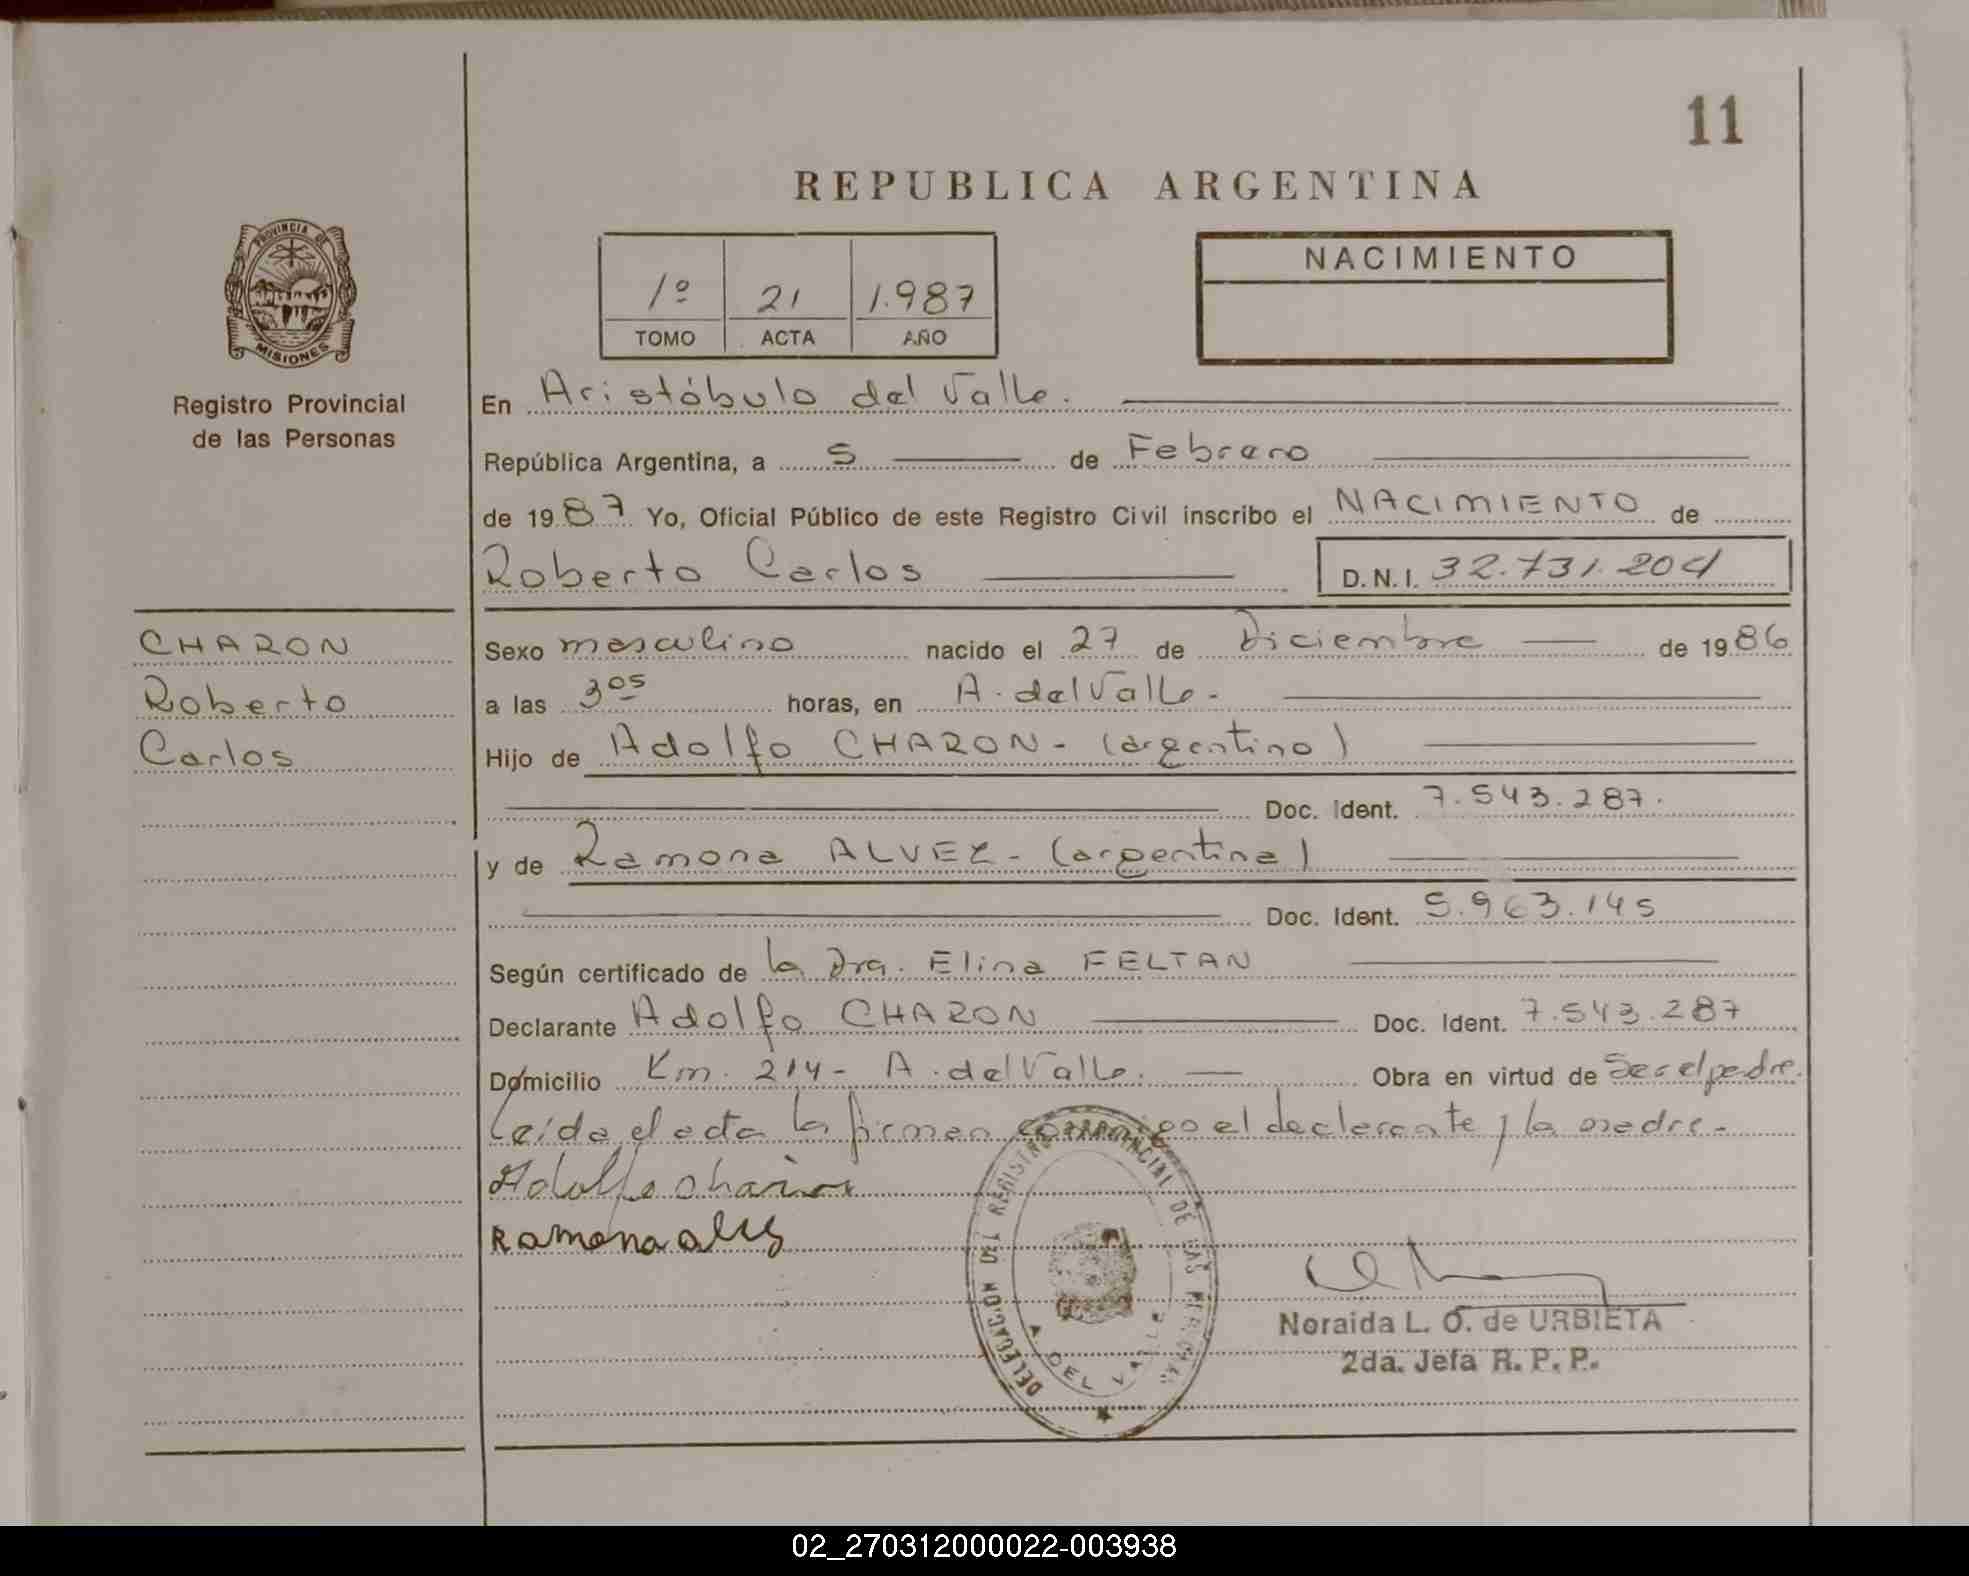 11
REPUBLICA ARGENTINA
PROVINCIA DE
MISIONES
Registro Provincial
de las Personas
1º 21 1.987
TOMO ACTA AÑO
NACIMIENTO
En Aristóbulo del Valle.
República Argentina, a 5 de Febrero
de 1987 Yo, Oficial Público de este Registro Civil inscribo el NACIMIENTO de
Roberto Carlos D.N.I. 32.731.204
CHARON
Roberto
Carlos
Sexo masculino nacido el 27 de Diciembre de 1986
a las 305 horas, en A. del Valle.
Hijo de Adolfo CHARON - (argentino)
Doc. Ident. 7.543.287.
y de Ramona ALVEZ - (argentina)
Doc. Ident. 5.963.145
Según certificado de la Dra. Elina FELTAN
Declarante Adolfo CHARON Doc. Ident. 7.543.287
Domicilio Km. 214 - A. del Valle. Obra en virtud de Ser el padre.
Leída el acta la firman conmigo el declarante y la madre.
Adolfo
Ramona
DELEGACION DEL REGISTRO PROVINCIAL DE LAS PERSONAS
A. DEL VALLE
Noraida L. O. de URBIETA
2da. Jefa R. P. P.
02_270312000022-003938